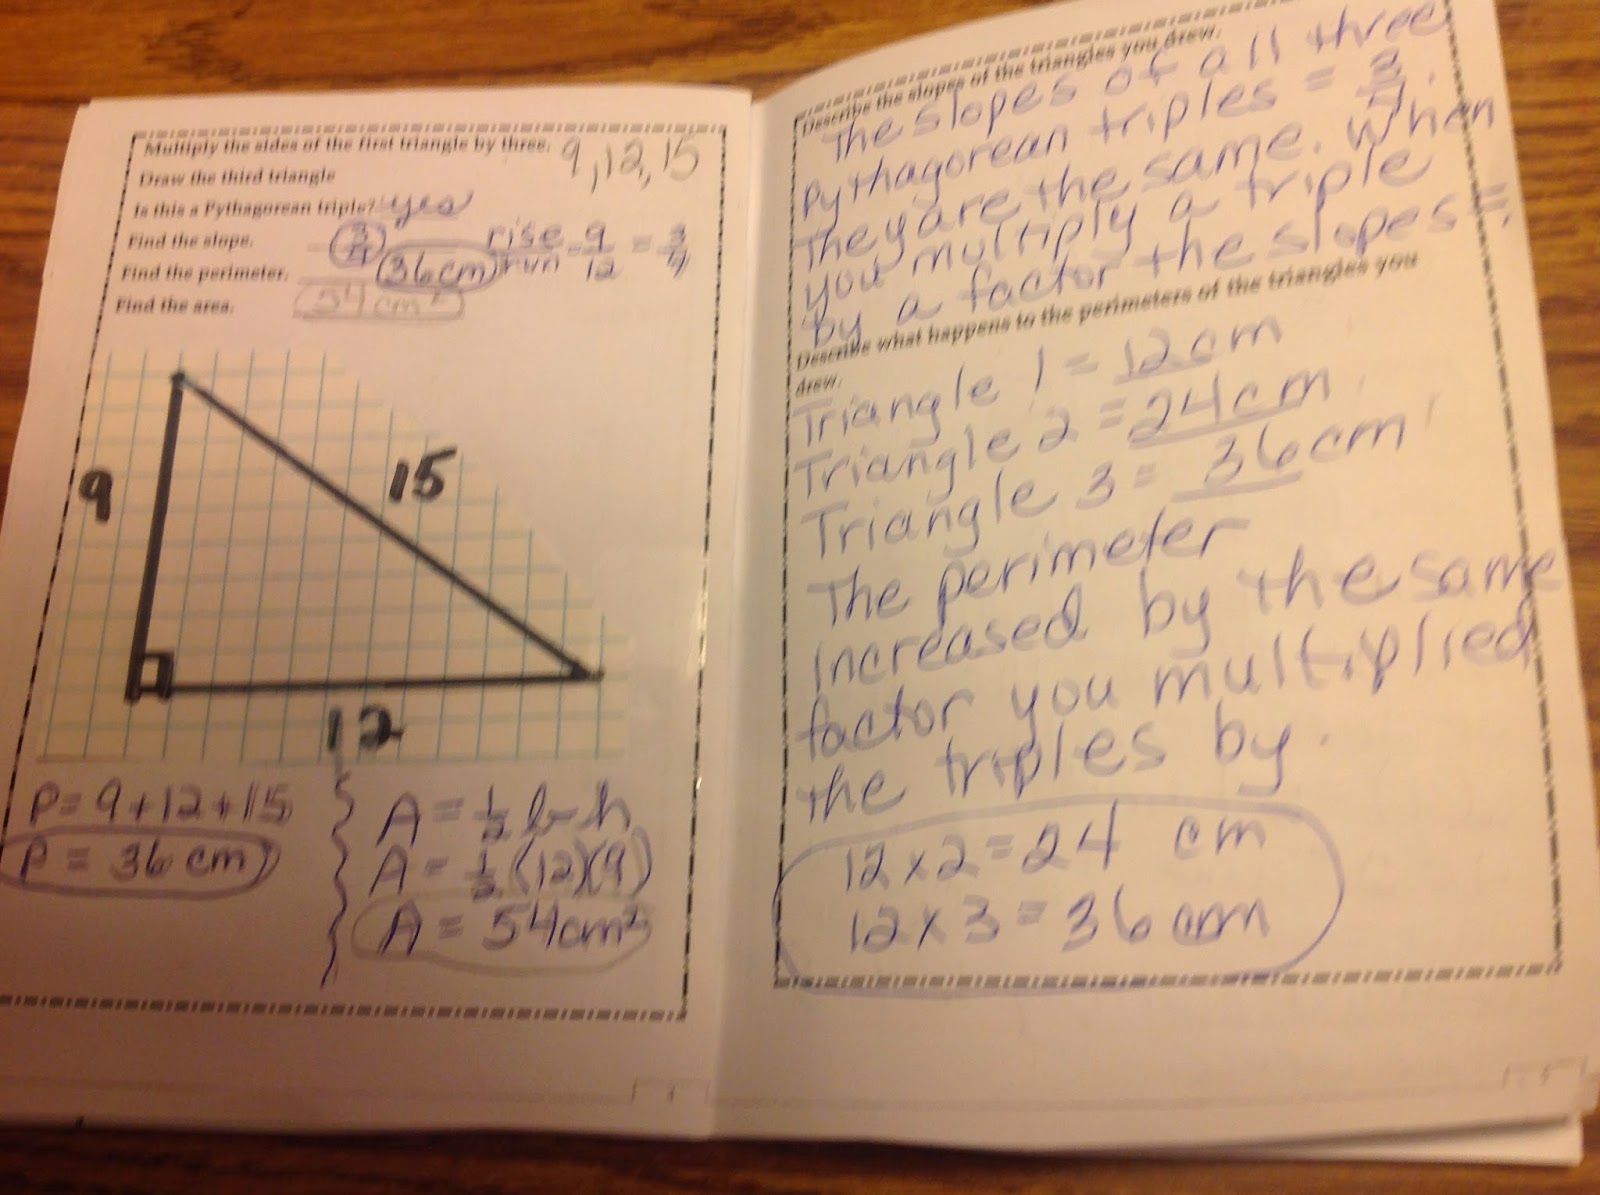 Multiply the sides of the first triangle by three. 9, 12, 15
Draw the third triangle
Is this a Pythagorean triple? yes
Find the slope. -3/4 rise/run = 9/12 = 3/4
Find the perimeter. 36cm
Find the area. 54cm²
9
15
12
P = 9+12+15
P = 36 cm
A = ½ b·h
A = ½(12)(9)
A = 54cm²
Describe the slopes of the triangles you drew.
The slopes of all three
pythagorean triples = 3/4.
They are the same. When
you multiply a triple
by a factor the slopes =.
Describe what happens to the perimeters of the triangles you
drew.
Triangle 1 = 12cm
Triangle 2 = 24cm
Triangle 3 = 36cm
The perimeter
increased by the same
factor you multiplied
the triples by.
12 x 2 = 24 cm
12 x 3 = 36 cm